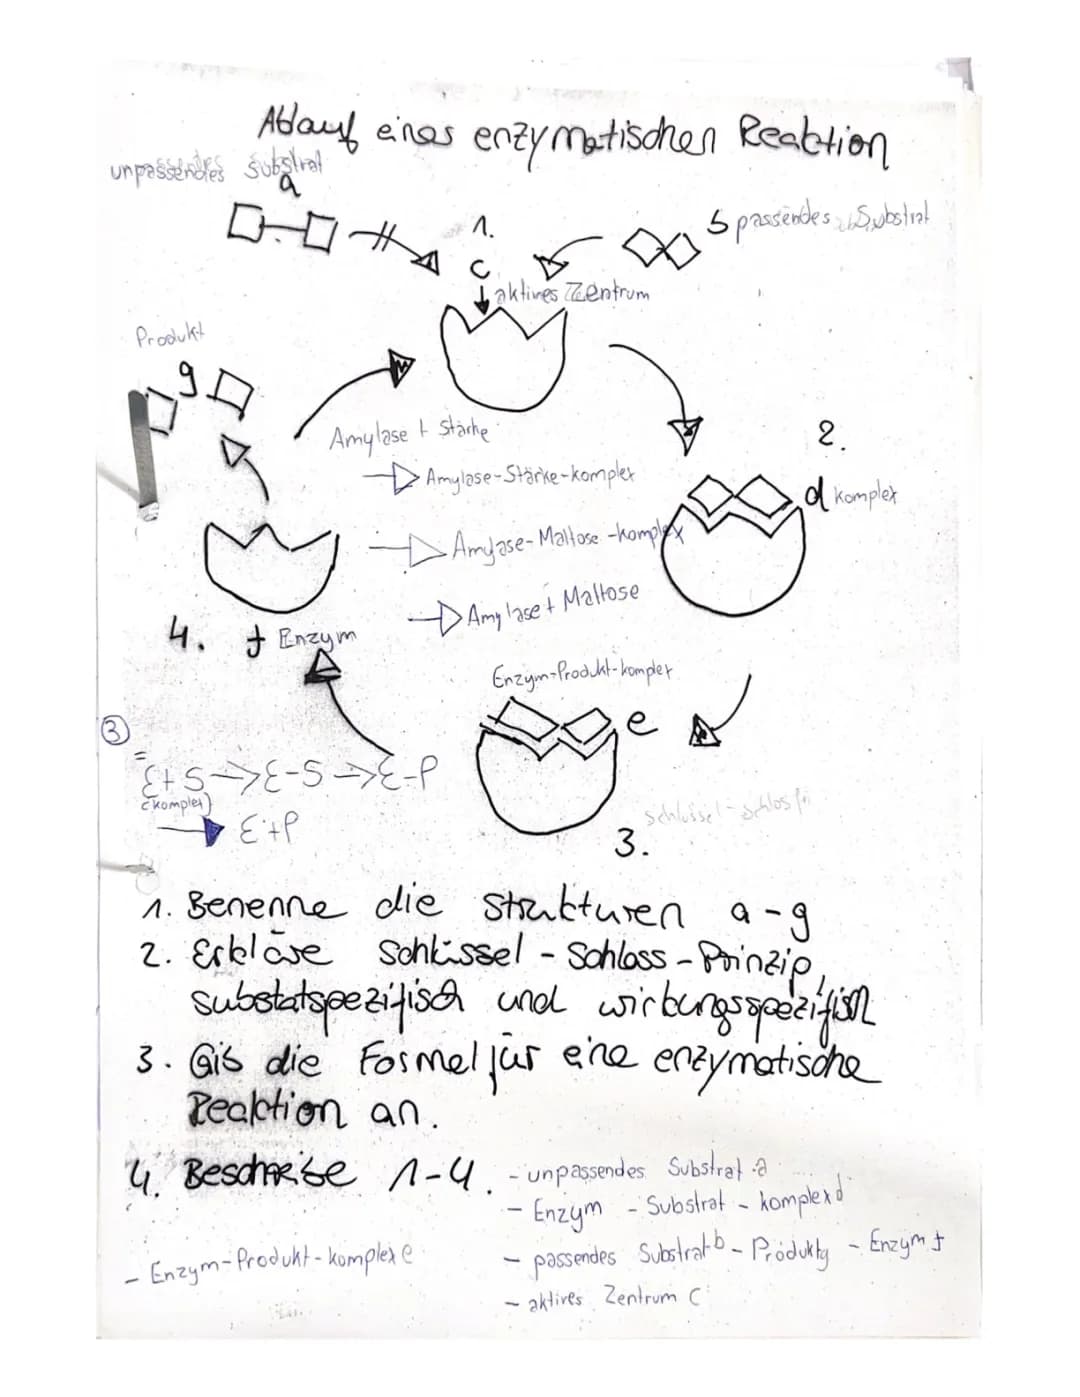 Ablauf einer enzymatischen Reaktion
unpassendes Substrat
a
1.
b passendes Substrat
c
aktives Zentrum
Produkt
g
Amylase + Stärke
2.
Amylase-Stärke-komplex
d komplex
Amylase-Maltose-komplex
Amylase + Maltose
4. f Enzym
Enzym-Produkt-komplex
e
3
E+S → E-S → E-P
(komplex)
E+P
schlüssel-schloss
3.
1. Benenne die Strukturen a-g
2. Erkläre Schlüssel-Schloss-Prinzip,
substatspezifisch und wirkungsspezifisch
3. Gib die Formel für eine enzymatische
Reaktion an.
4. Beschreibe 1-4.
- unpassendes Substrat a
- Enzym - Substrat - komplex d
- passendes Substrat b - Produkt g - Enzym f
- Enzym-Produkt-komplex e
- aktives Zentrum c